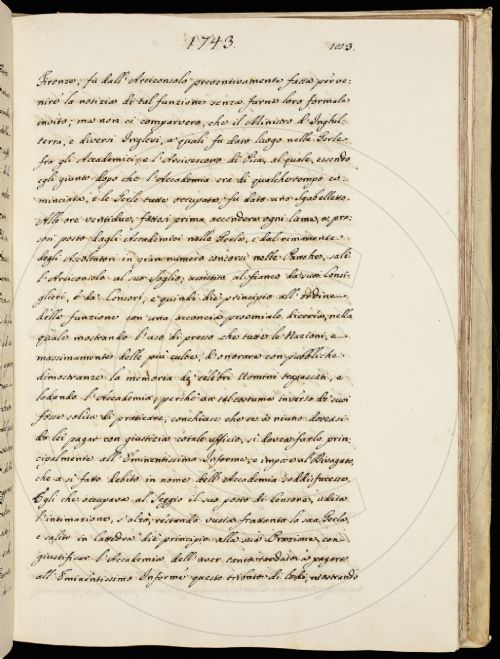 1743.
1003.
Firenze; fù dall'Arciconsolo preventivamente fatta perve-
nire la notizia di tal funzione senza farne loro formale
invito; ma non ci comparvero, che il Ministro d'Inghil-
terra, e diversi Inglesi, a' quali fu dato luogo nelle Gerle
fra gli Accademici, e l'Arcivescovo di Pisa, al quale, essendo
egli giunto dopo che l'Accademia era di qualche tempo co-
minciata, e le Gerle tutte occupate, fu dato uno Sgabelletto.
Alle ore ventidue, fattosi prima accendere ogni lume, e pre-
son posto dagli Accademici nelle Gerle, e dal rimanente
degli Ascoltatori in gran numero concorsi nelle Panche, salì
l'Arciconsolo al suo Soglio, assistito al fianco da' suoi Consi-
glieri, e da' Censori, e quindi diè principio all'ordine
della funzione con una acconcia proemiale diceria, nella
quale mostrando l'uso di presso che tutte le Nazioni, e
massimamente delle più culte, d'onorare con pubbliche
dimostranze la memoria di celebri Uomini trapassati, e
lodando l'Accademia, perchè un tal costume inverso di suoi
fosse solita di praticare, conchiuse che se a niuno dovea-si
da lei pagar con giustizia cotale ufficio, si dovea farlo prin-
cipalmente all'Eminentissimo Informe; e impose al Divagato,
che a sì fatto debito in nome dell'Accademia soddisfacesse.
Egli che occupava al Seggio il suo posto di Censore, udita
l'intimazione, s'alzò, restando vuota frattanto la sua Gerla,
e salito in Cattedra diè principio alla sua Orazione, con
giustificar l'Accademia dell'aver tanto tardato a pagare
all'Eminentissimo Informe questo tributo di lode, mostrando